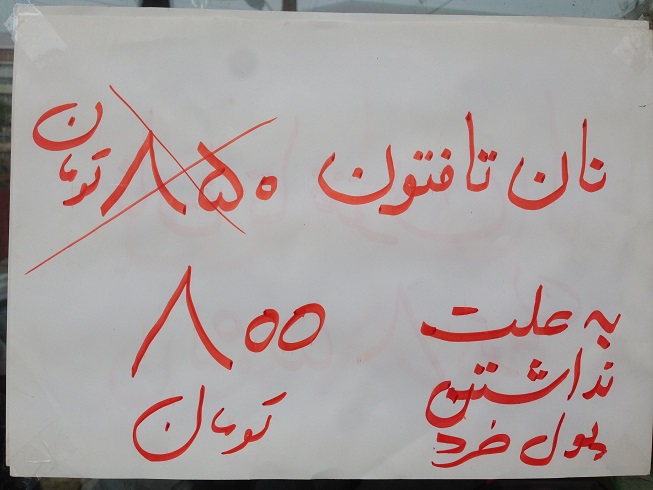 نان تافتون ۸۵۰ تومان
به علت
نداشتن
پول خرد
۸۰۰
تومان